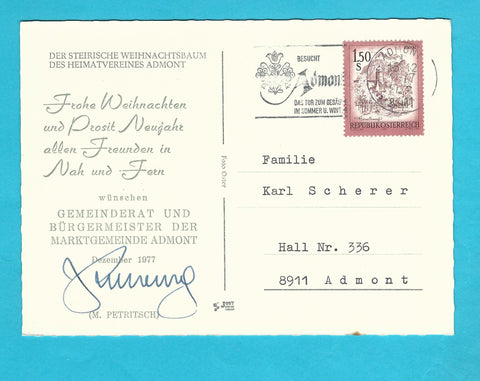 DER STEIRISCHE WEIHNACHTSBAUM
DES HEIMATVEREINES ADMONT
Frohe Weihnachten
und Prosit Neujahr
allen Freunden in
Nah und Fern
wünschen
GEMEINDERAT UND
BÜRGERMEISTER DER
MARKTGEMEINDE ADMONT
Dezember 1977
(M. PETRITSCH)
BESUCHT
Admont
DAS TOR ZUM
IM SOMMER U.
1.50
S
REPUBLIK ÖSTERREICH
Familie
Karl Scherer
Hall Nr. 336
8911 Admont